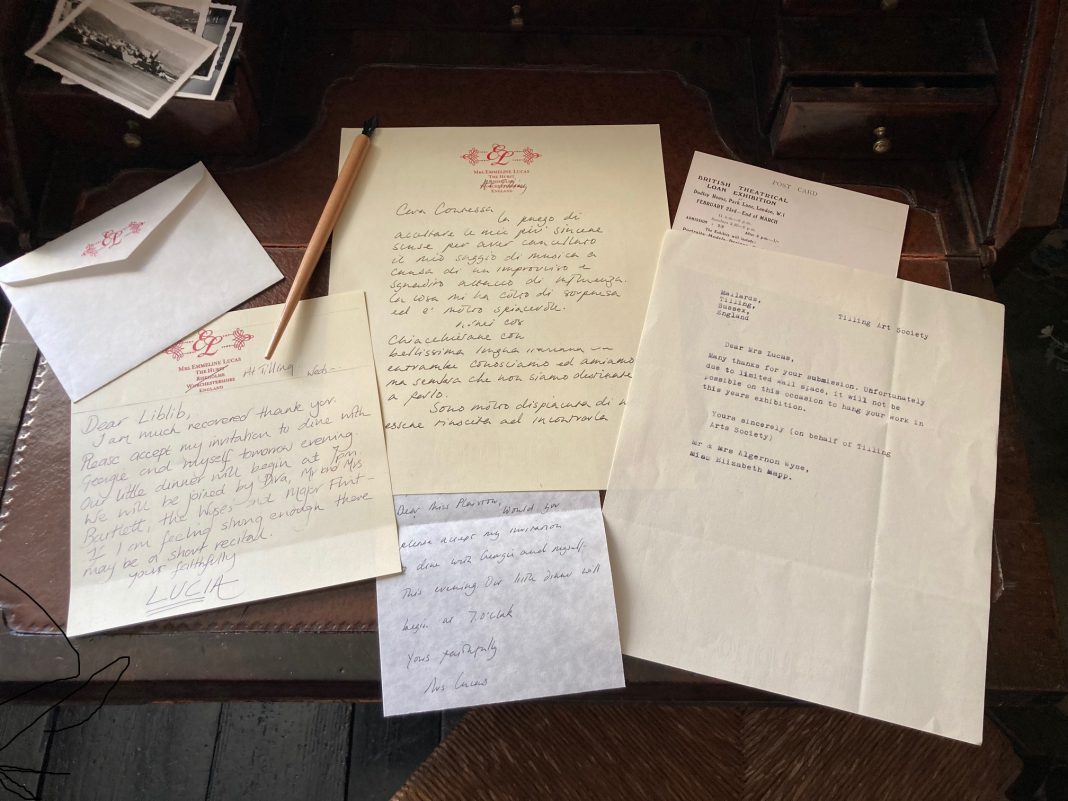 EL
EL
MRS EMMELINE LUCAS
THE HURST
RISEHOLME
WORCHESTERSHIRE
ENGLAND
At Tilling
Weds
Dear Liblib,
I am much recovered thank you.
Please accept my invitation to dine with
Georgie and myself tomorrow evening
Our little dinner will begin at 7pm.
We will be joined by Diva, Mr and Mrs
Bartlett, the Wyses and Major Flint-
If I am feeling strong enough there
may be a short recital.
your faithfully
LUCIA
EL
MRS EMMELINE LUCAS
THE HURST
RISEHOLME
ENGLAND
Cara Contessa
la prego di
accettare le mie più sincere
scuse per aver cancellato
il mio saggio di musica a
causa di un improvviso e
sgradito attacco di influenza.
la cosa mi ha colto di sorpresa
ed e' molto spiacevole.
Chiacchierare con
bellissima lingua
entrambe conosciamo ed amiamo
ma sembra che non siamo destinate
a farlo.
Sono molto dispiaciuta di
essere riuscita ad incontrarla
Dear Miss
Would you
please accept my invitation
to dine with Georgie and myself
this evening Our little dinner will
begin at 7.o'clok
Yours faithfully
Mrs Lucas
POST CARD
BRITISH THEATRICAL
LOAN EXHIBITION
Dudley House, Park Lane, London, W.1
FEBRUARY 23rd-End of MARCH
ADMISSION
The Exhibits will include:
Mallards,
Tilling,
Sussex,
England
Tilling Art Society
Dear Mrs Lucas,
Many thanks for your submission. Unfortunately
due to limited wall space, it will not be
possible on this occasion to hang your work in
this years exhibition.
Yours sincerely (on behalf of Tilling
Arts Society)
Mr & Mrs Algernon Wyse,
Miss Elizabeth Mapp.